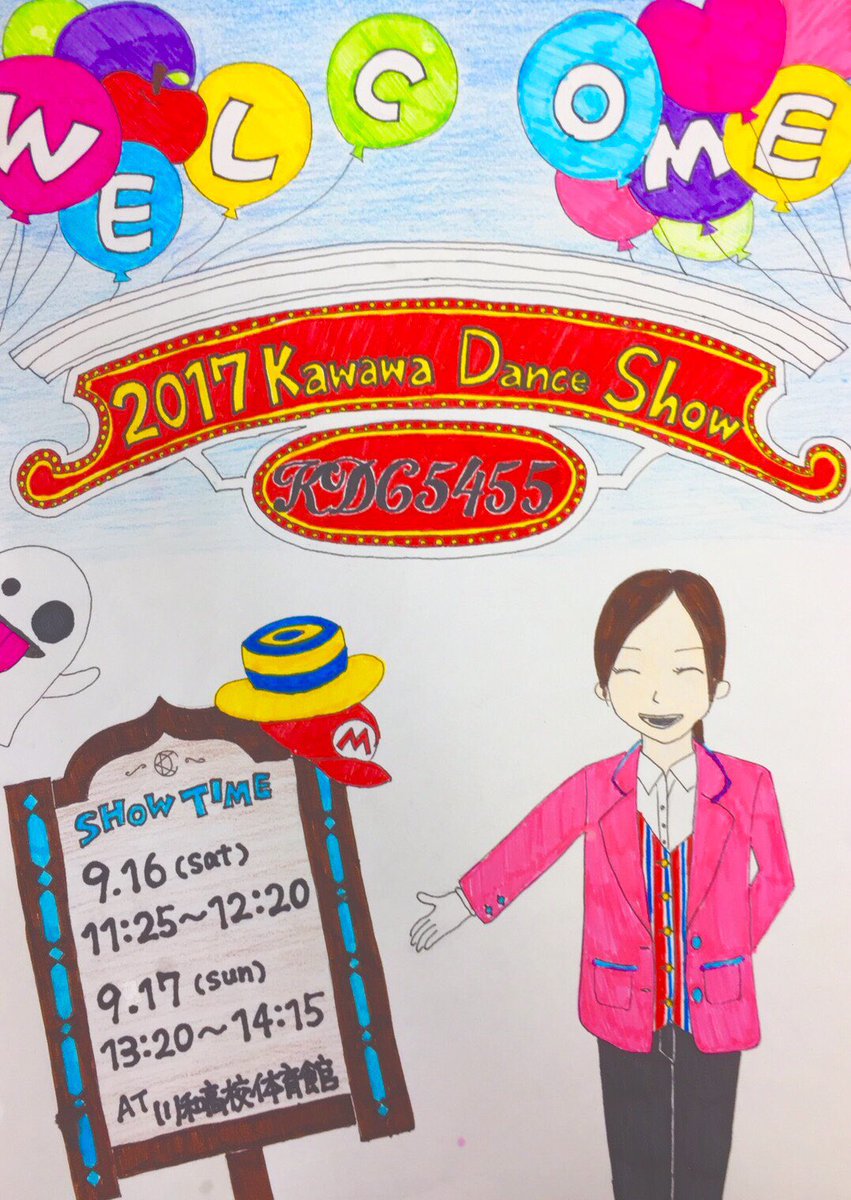 WELCOME
2017 Kawawa Dance Show
KDC5455
M
SHOW TIME
9.16 (sat)
11:25～12:20
9.17 (sun)
13:20～14:15
AT 川和高校体育館